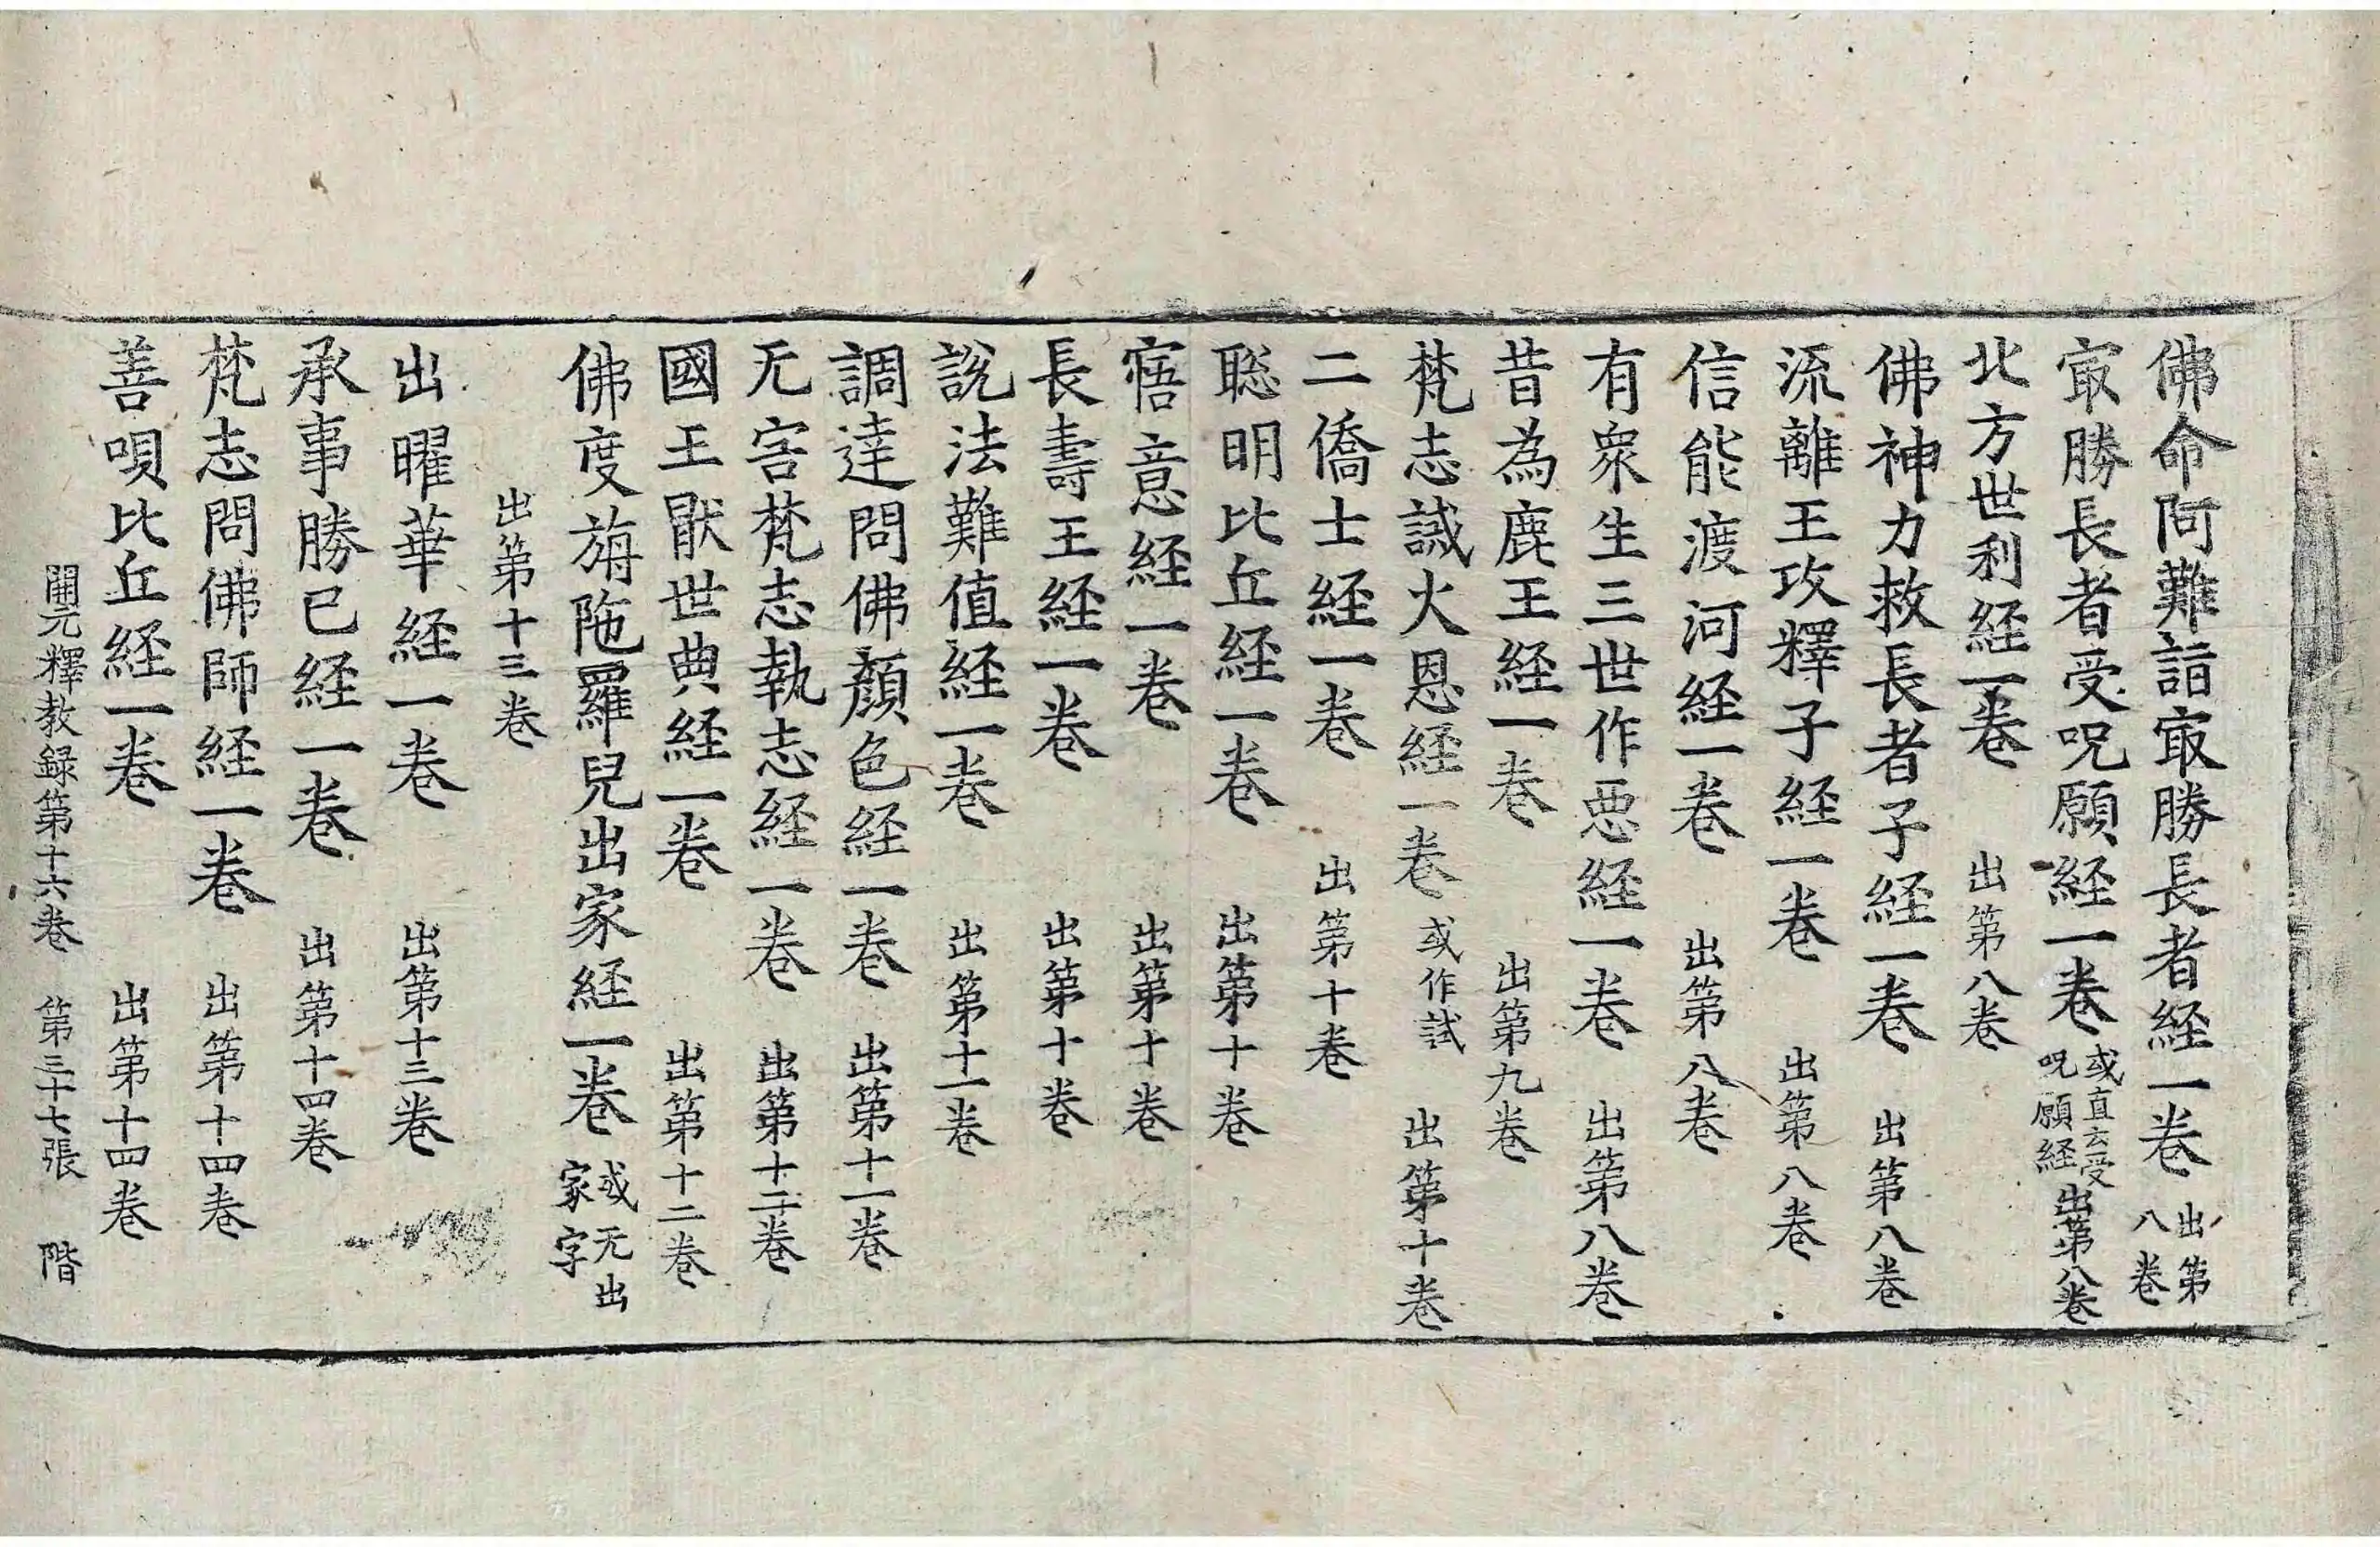 佛命阿難詣㝡勝長者経一卷 出第八卷
㝡勝長者受呪願経一卷 或直云受呪願経 出第八卷
北方世利経一卷 出第八卷
佛神力救長者子経一卷 出第八卷
流離王攻釋子経一卷 出第八卷
信能渡河経一卷 出第八卷
有衆生三世作惡経一卷 出第八卷
昔為鹿王経一卷 出第九卷
梵志誡火恩経一卷 或作試 出第十卷
二僑士経一卷 出第十卷
聡明比丘経一卷 出第十卷
寤意経一卷 出第十卷
長壽王経一卷 出第十卷
說法難值経一卷 出第十一卷
調達問佛顏色経一卷 出第十一卷
无害梵志執志経一卷 出第十二卷
國王猒世典経一卷 出第十二卷
佛度旃陁羅兒出家経一卷 或无出家字
出第十三卷
出曜華経一卷 出第十三卷
承事勝已経一卷 出第十四卷
梵志問佛師経一卷 出第十四卷
善唄比丘経一卷 出第十四卷
開元釋教録第十六卷 第三十七張 階